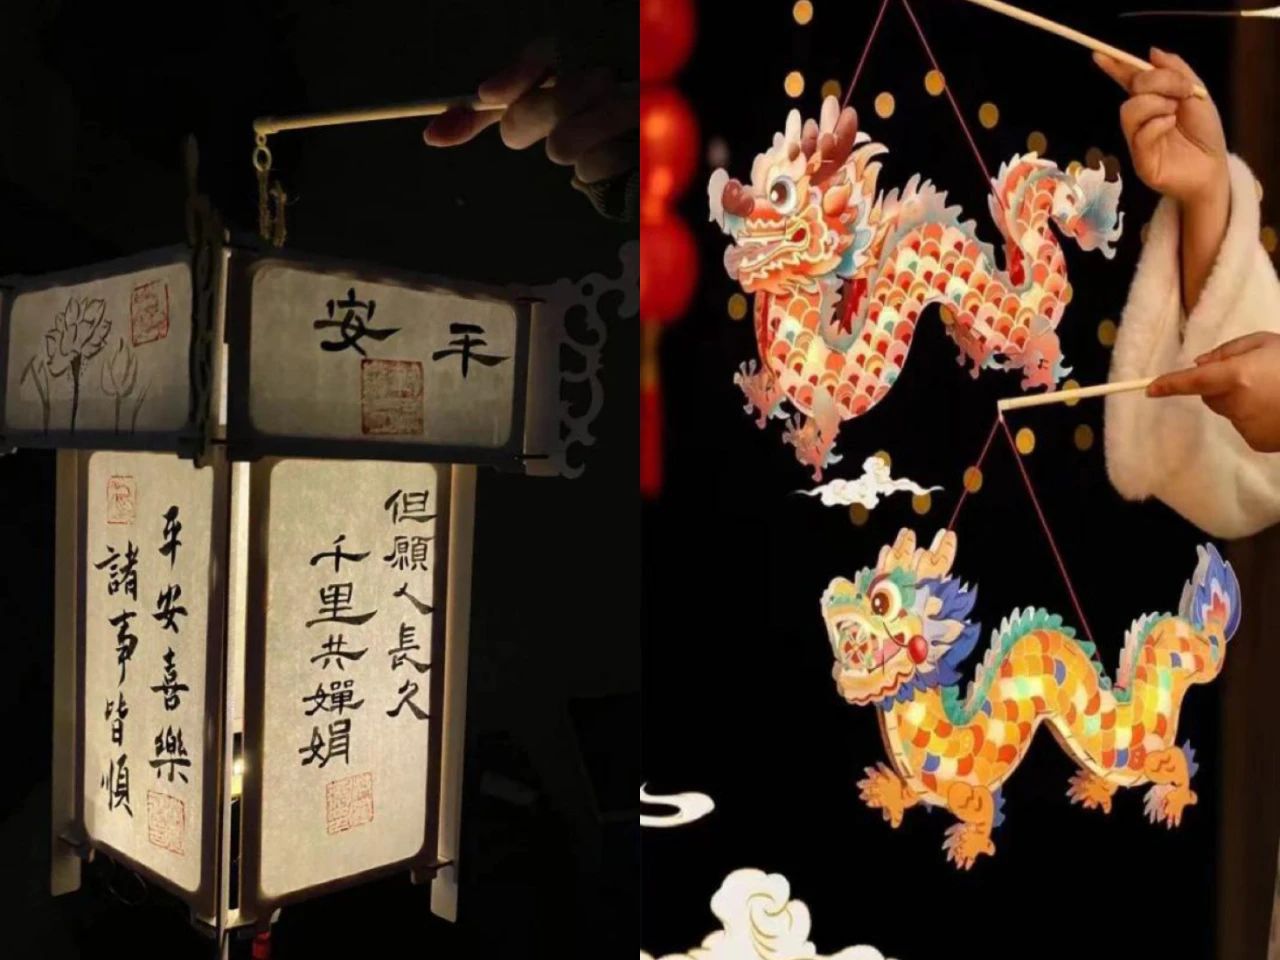 平安
平安喜樂
諸事皆順
但願人長久
千里共嬋娟